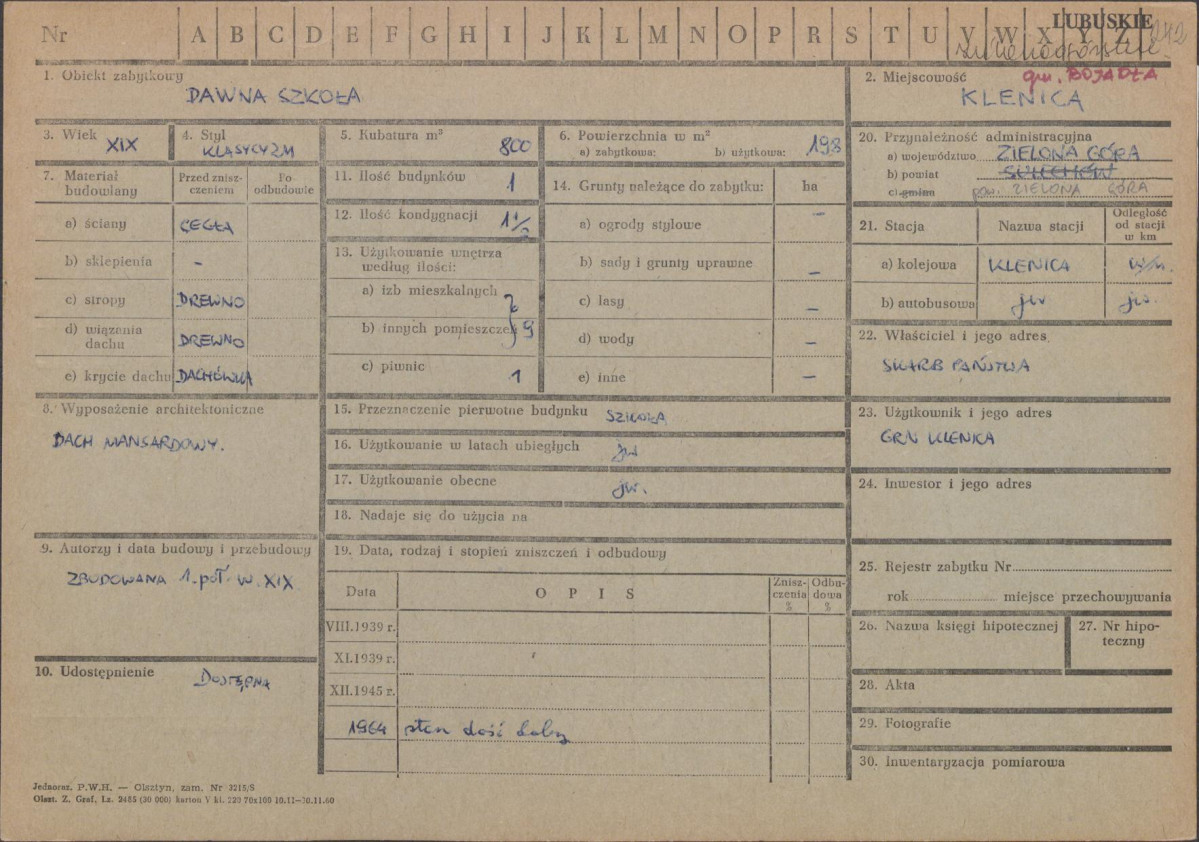 Nr A B C D E F G H I J K L M N O P R S T U V W X Y Z
LUBUSKIE
242
zielonogórskie
1. Obiekt zabytkowy
DAWNA SZKOŁA
2. Miejscowość
gm. BOJADŁA
KLENICA
3. Wiek
XIX
4. Styl
KLASYCYZM
5. Kubatura m³
800
6. Powierzchnia w m²
a) zabytkowa: b) użytkowa:
198
20. Przynależność administracyjna
a) województwo ZIELONA GÓRA
b) powiat SULECHÓW
c) gmina pow. ZIELONA GÓRA
7. Materiał budowlany
Przed znisz-
czeniem
Po
odbudowie
a) ściany CEGŁA
b) sklepienia -
c) stropy DREWNO
d) wiązania
dachu DREWNO
e) krycie dachu DACHÓWKA
11. Ilość budynków 1
12. Ilość kondygnacji 1 1/2
13. Użytkowanie wnętrza
według ilości:
a) izb mieszkalnych
b) innych pomieszcz. 9
c) piwnic 1
14. Grunty należące do zabytku: ha
a) ogrody stylowe –
b) sady i grunty uprawne –
c) lasy –
d) wody –
e) inne –
21. Stacja Nazwa stacji
Odległość
od stacji
w km
a) kolejowa KLENICA w/m.
b) autobusowa jw jw.
22. Właściciel i jego adres
SKARB PAŃSTWA
8. Wyposażenie architektoniczne
DACH MANSARDOWY.
15. Przeznaczenie pierwotne budynku SZKOŁA
16. Użytkowanie w latach ubiegłych jw
17. Użytkowanie obecne jw.
18. Nadaje się do użycia na
23. Użytkownik i jego adres
GRN KLENICA
24. Inwestor i jego adres
9. Autorzy i data budowy i przebudowy
ZBUDOWANA 1. poł. w. XIX
19. Data, rodzaj i stopień zniszczeń i odbudowy
Data O P I S
Znisz-
czenia
%
Odbu-
dowa
%
VIII.1939 r.
XI.1939 r.
XII.1945 r.
1964 stan dość dobry
25. Rejestr zabytku Nr
rok miejsce przechowywania
26. Nazwa księgi hipotecznej
27. Nr hipo-
teczny
10. Udostępnienie
DOSTĘPNA
28. Akta
29. Fotografie
30. Inwentaryzacja pomiarowa
Jednoraz. P.W.H. — Olsztyn, zam. Nr 3215/S
Olszt. Z. Graf. Lz. 2485 (30 000) karton V kl. 220 70x100 10.11—30.11.60